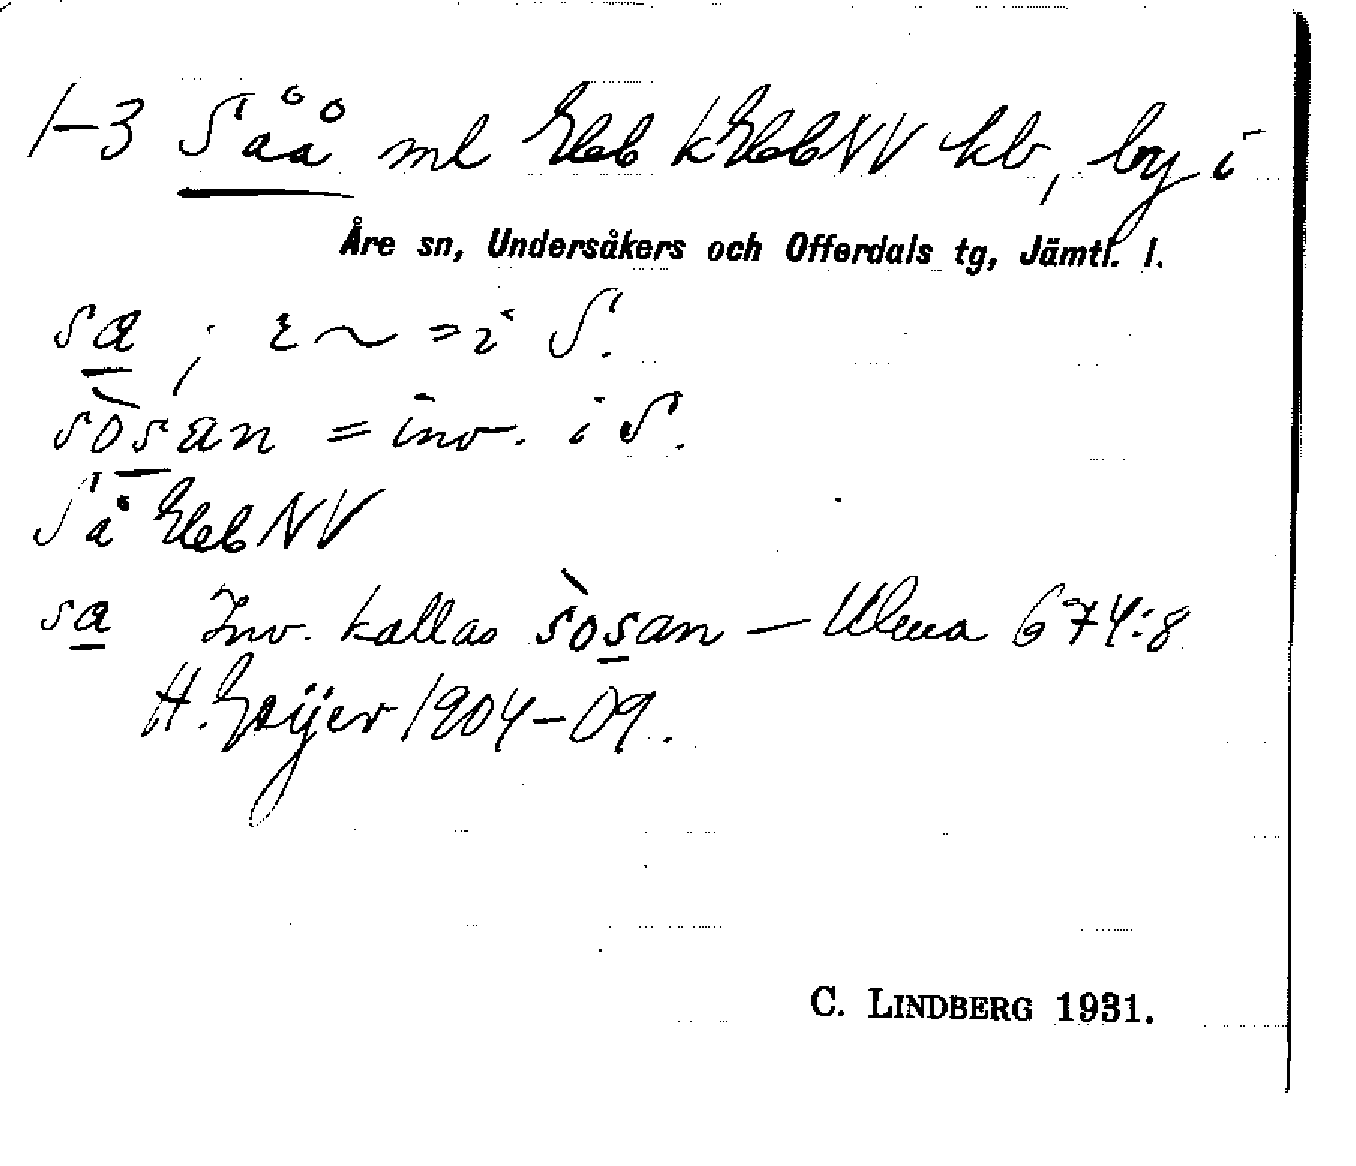 1-3 Såå ml Ekb kEkbNV kb, by i
Åre sn, Undersåkers och Offerdals tg, Jämtl. l.
sa ; ɩ ~ = i S.
sòsan = inv. i S.
Så EkbNV
sa Inv. kallas sòsan — Ulma 674:8
H. Geijer 1904-09.
C. LINDBERG 1931.